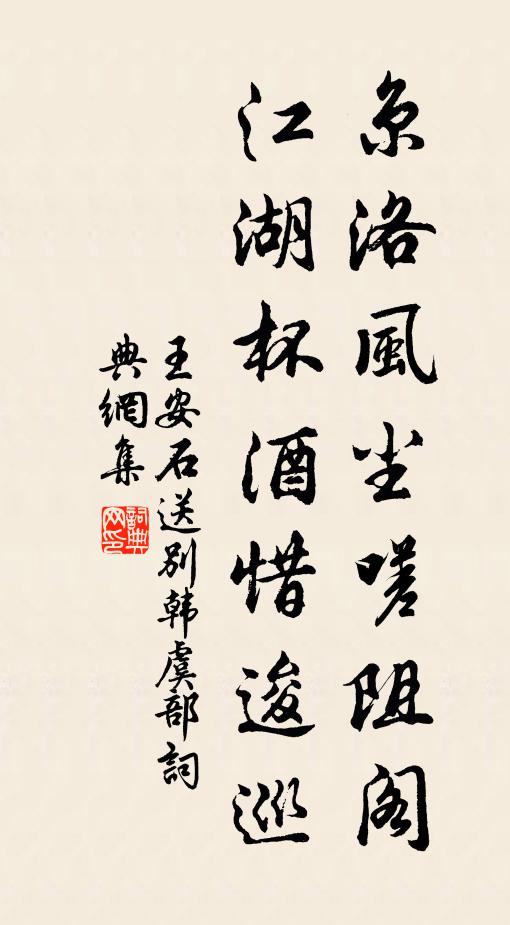 京洛風尘嗟阻阁
江湖杯酒惜逡巡
王安石送别韩虞部詞
典網集
詞典
网印